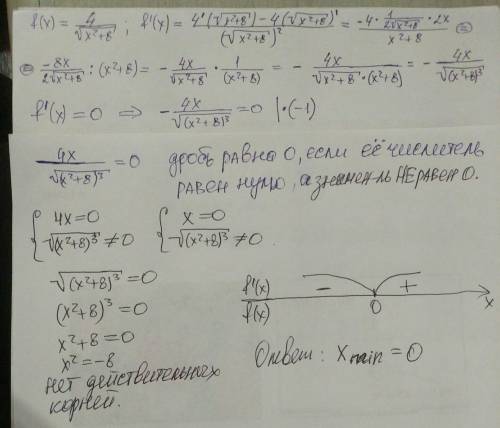 f(x) = 4/√(x²+8) ; f'(x) = (4'(√(x²+8)) - 4(√(x²+8))')/(√(x²+8))² = (-4·1/(2√(x²+8))·2x)/(x²+8) =
= -8x/(2√(x²+8)) : (x²+8) = -4x/√(x²+8) · 1/(x²+8) = - 4x/(√(x²+8)·(x²+8)) = - 4x/√((x²+8)³)
f'(x) = 0 ⇒ -4x/√((x²+8)³) = 0 |·(-1)
4x/√((x²+8)³) = 0 дробь равна 0, если её числитель
равен нулю, а знамен-ль НЕ равен 0.
{4x=0 {x=0
√((x²+8)³)≠0 √((x²+8)³)≠0.
√((x²+8)³) = 0
(x²+8)³ = 0
x²+8 = 0
x² = -8
нет действительных
корней.
f'(x) - +
f(x) 0 x
Ответ: xmin = 0